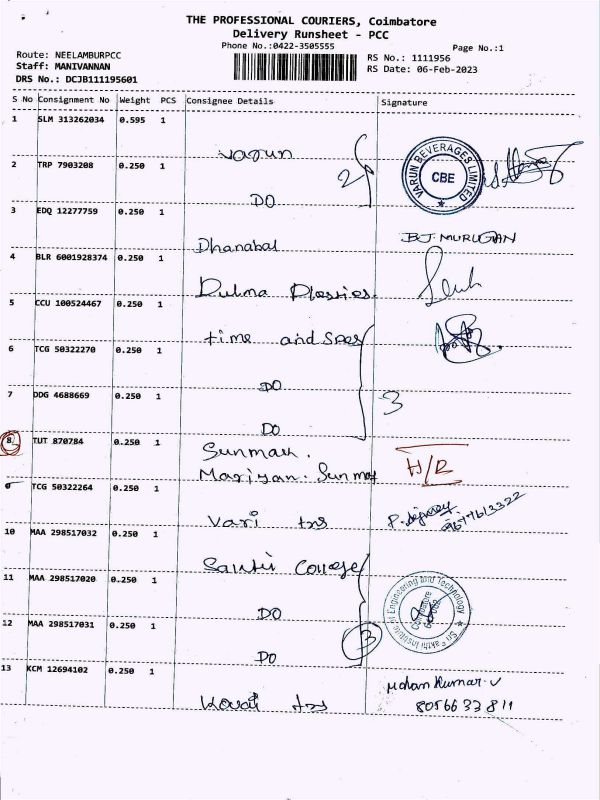 THE PROFESSIONAL COURIERS, Coimbatore
Delivery Runsheet - PCC
Phone No.:0422-3505555
Page No.:1
Route: NEELAMBURPCC
Staff: MANIVANNAN
DRS No.: DCJB111195601
RS No.: 1111956
RS Date: 06-Feb-2023
S No Consignment No Weight PCS Consignee Details Signature
1 SLM 313262034 0.595 1
Varun
2
VARUN BEVERAGES LIMITED
CBE
2 TRP 7903208 0.250 1
DO
3 EDQ 12277759 0.250 1
Dhanabal
B.J. MURUGAN
4 BLR 6001928374 0.250 1
5 CCU 100524467 0.250 1
time and
6 TCG 50322270 0.250 1
DO
7 DDG 4688669 0.250 1
3
DO
8 TUT 870784 0.250 1
Sunmark.
Mariyan.
H/R
9 TCG 50322264 0.250 1
Vari tns
10 MAA 298517032 0.250 1
College
11 MAA 298517020 0.250 1
DO
Institute of Engineering and Technology
Coimbatore
12 MAA 298517031 0.250 1
3
DO
13 KCM 12694102 0.250 1
Mohan Kumar.V
Kovai tns